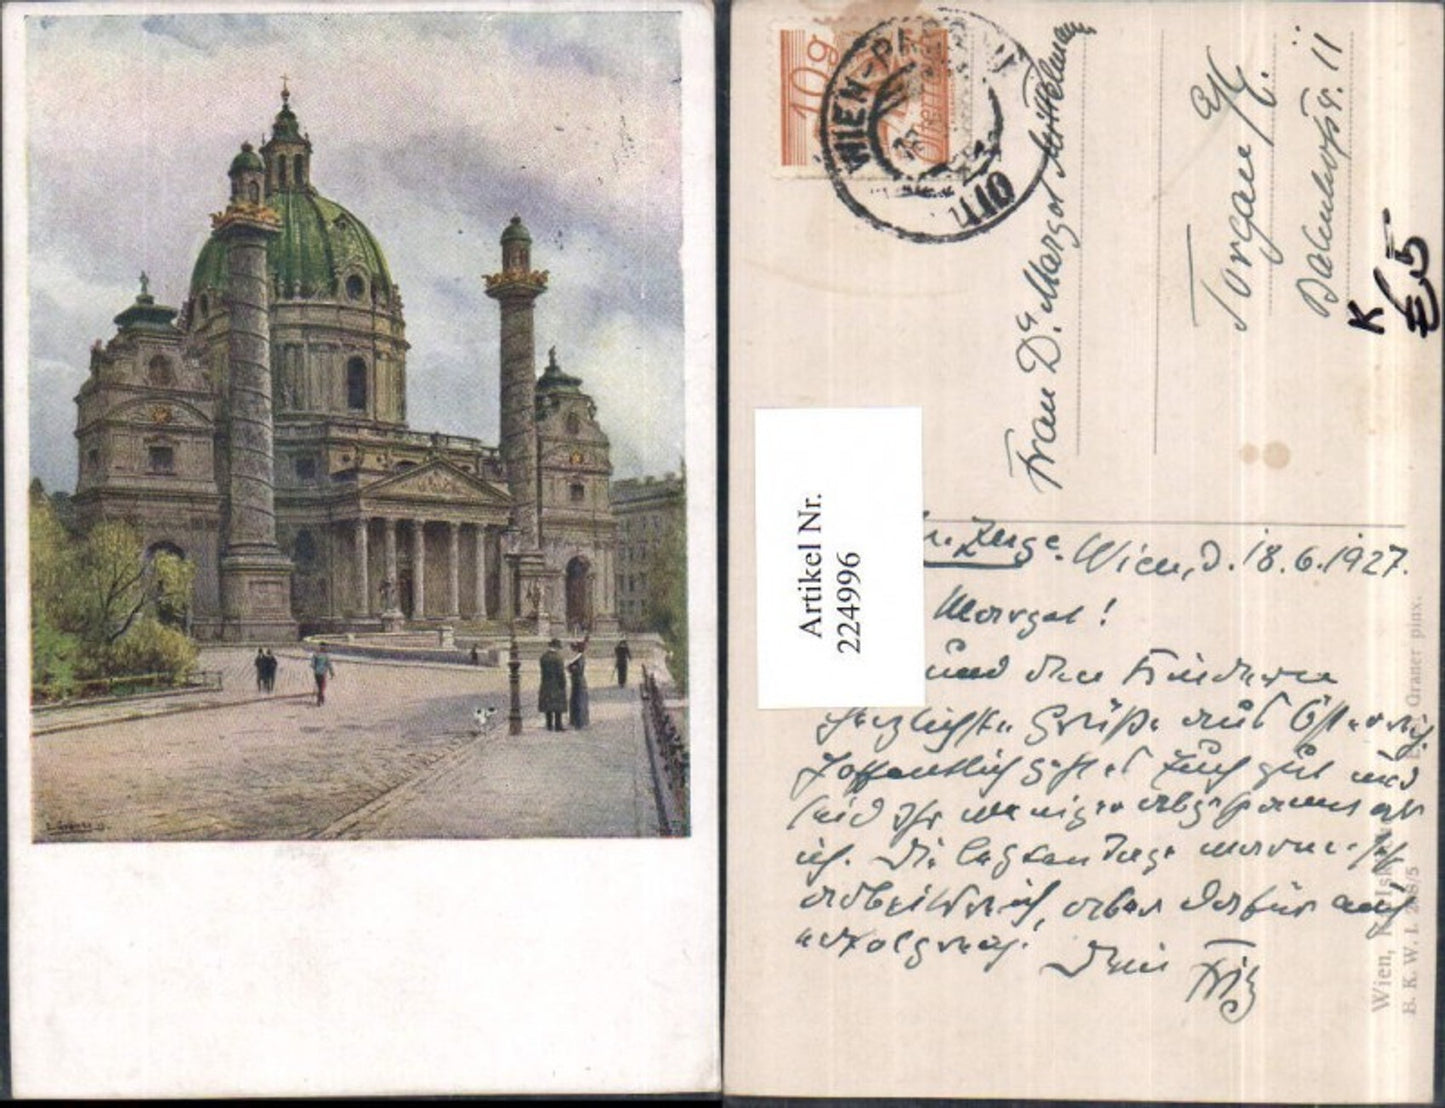 10g
WIEN-PR
Österr
Frau Dr. Margot Mittelmann
Torgau a/E.
Bahnhofstr. 11
K
E 5
Artikel Nr.
224996
Wien, d. 18.6.1927.
Margot!
und den Kindern
herzlichste Grüße aus Österreich.
Hoffentlich geht es Euch gut und
seid Ihr weniger abgespannt als
ich. Die letzten Tage waren
arbeitsreich, aber dafür auch
erfolgreich!
Dein Fritz
Wien,
B. K. W. I.
Graner pinx.